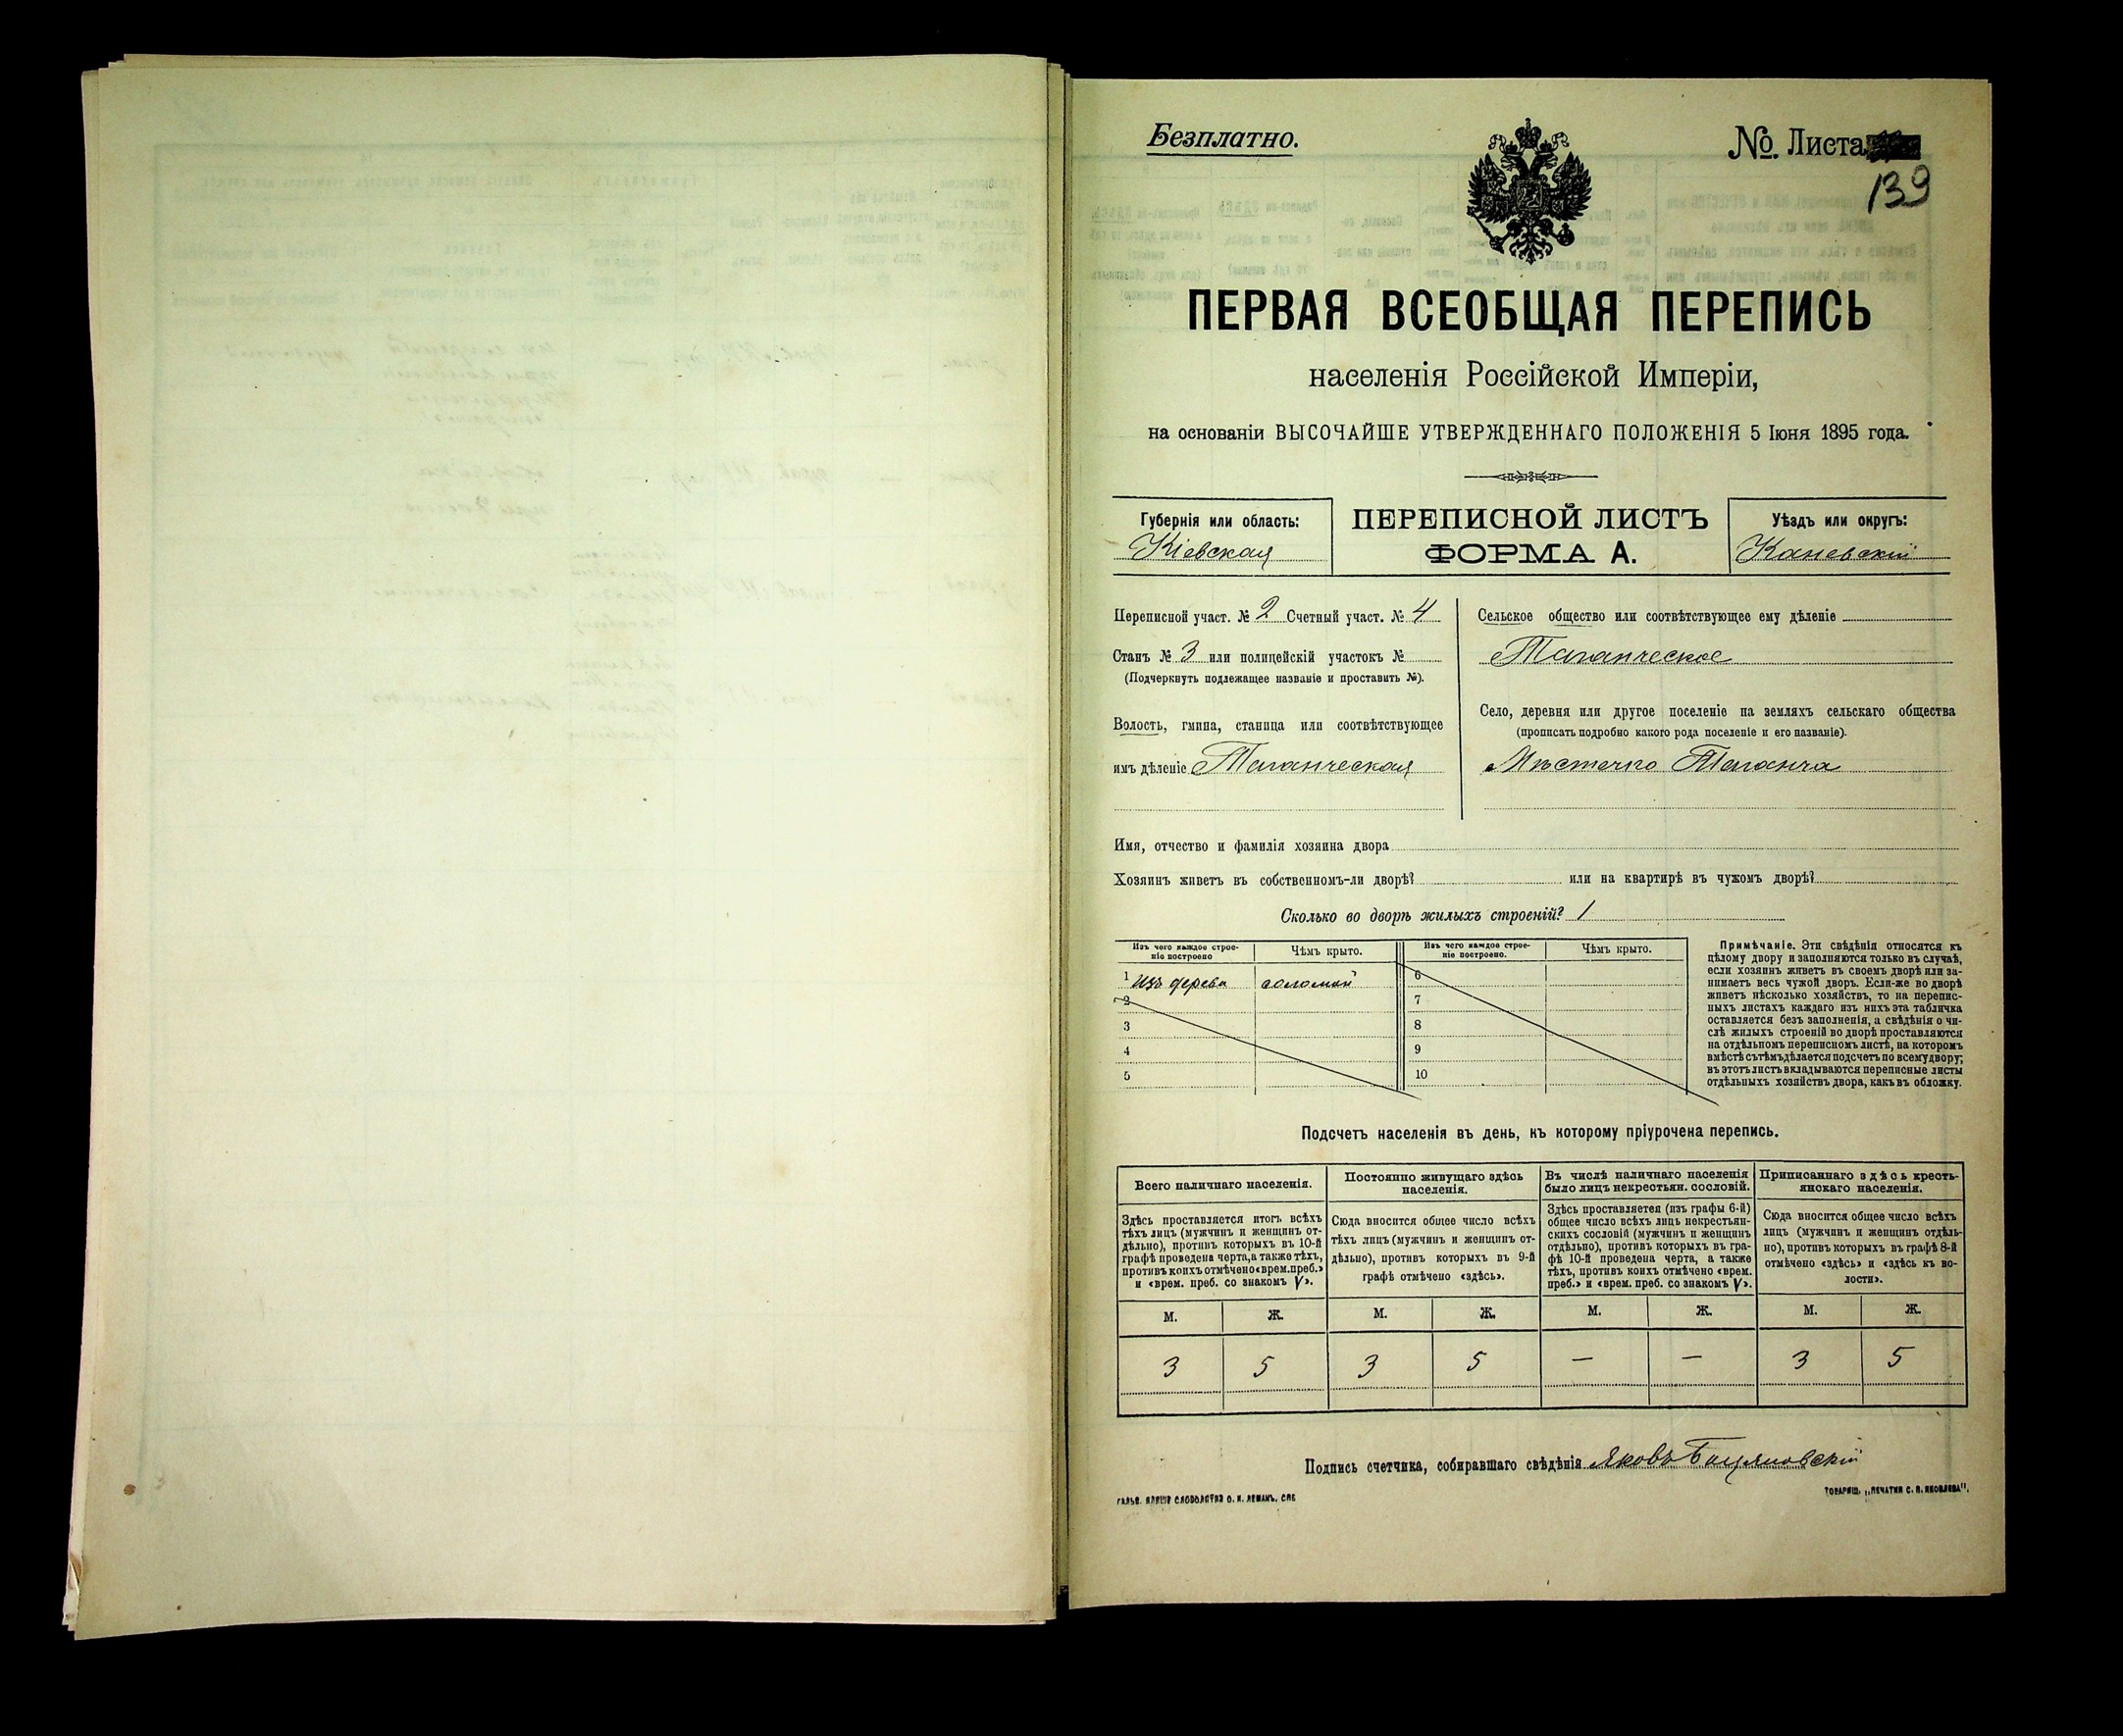 Безплатно.
№ Листа
139
ПЕРВАЯ ВСЕОБЩАЯ ПЕРЕПИСЬ
населенія Россійской Имперіи,
на основаніи ВЫСОЧАЙШЕ УТВЕРЖДЕННАГО ПОЛОЖЕНІЯ 5 Іюня 1895 года.
Губернія или область:
Кіевская
ПЕРЕПИСНОЙ ЛИСТЪ
ФОРМА А.
Уѣздъ или округъ:
Каневскій
Переписной участ. № 2 Счетный участ. № 4
Станъ № 3 или полицейскій участокъ №
(Подчеркнуть подлежащее названіе и проставить №).
Волость, гмина, станица или соотвѣтствующее
имъ дѣленіе Таганческая
Сельское общество или соотвѣтствующее ему дѣленіе
Таганческое
Село, деревня или другое поселеніе на земляхъ сельскаго общества
(прописать подробно какого рода поселеніе и его названіе).
Мѣстечко Таганча
Имя, отчество и фамилія хозяина двора
Хозяинъ живетъ въ собственномъ-ли дворѣ? или на квартирѣ въ чужомъ дворѣ?
Сколько во дворѣ жилыхъ строеній? 1
Изъ чего каждое строе-
ніе построено
Чѣмъ крыто.
1 Изъ дерева соломой
2
3
4
5
Изъ чего каждое строе-
ніе построено.
Чѣмъ крыто.
6
7
8
9
10
Примѣчаніе. Эти свѣдѣнія относятся къ
цѣлому двору и заполняются только въ случаѣ,
если хозяинъ живетъ въ своемъ дворѣ или за-
нимаетъ весь чужой дворъ. Если-же во дворѣ
живетъ нѣсколько хозяйствъ, то на перепис-
ныхъ листахъ каждаго изъ нихъ эта табличка
оставляется безъ заполненія, а свѣдѣнія о чи-
слѣ жилыхъ строеній во дворѣ проставляются
на отдѣльномъ переписномъ листѣ, на которомъ
вмѣстѣ съ тѣмъ дѣлается подсчетъ по всему двору;
въ этотъ листъ вкладываются переписные листы
отдѣльныхъ хозяйствъ двора, какъ въ обложку.
Подсчетъ населенія въ день, къ которому пріурочена перепись.
Всего наличнаго населенія.
Здѣсь проставляется итогъ всѣхъ
тѣхъ лицъ (мужчинъ и женщинъ от-
дѣльно), противъ которыхъ въ 10-й
графѣ проведена черта, а также тѣхъ,
противъ коихъ отмѣчено «врем. преб.»
и «врем. преб. со знакомъ V».
Постоянно живущаго здѣсь
населенія.
Сюда вносится общее число всѣхъ
тѣхъ лицъ (мужчинъ и женщинъ от-
дѣльно), противъ которыхъ въ 9-й
графѣ отмѣчено «здѣсь».
Въ числѣ наличнаго населенія
было лицъ некрестьян. сословій.
Здѣсь проставляется (изъ графы 6-й)
общее число всѣхъ лицъ некрестьян-
скихъ сословій (мужчинъ и женщинъ
отдѣльно), противъ которыхъ въ гра-
фѣ 10-й проведена черта, а также
тѣхъ, противъ коихъ отмѣчено «врем.
преб.» и «врем. преб. со знакомъ V».
Приписаннаго здѣсь кресть-
янскаго населенія.
Сюда вносится общее число всѣхъ
лицъ (мужчинъ и женщинъ отдѣль-
но), противъ которыхъ въ графѣ 8-й
отмѣчено «здѣсь» и «здѣсь къ во-
лости».
М. Ж. М. Ж. М. Ж. М. Ж.
3 5 3 5 — — 3 5
Подпись счетчика, собиравшаго свѣдѣнія Яковъ
СЛОВОЛИТНЯ О. И. ЛЕМАНЪ, СПБ
ТОВАРИЩ. „ПЕЧАТНЯ С. П. ЯКОВЛЕВА".